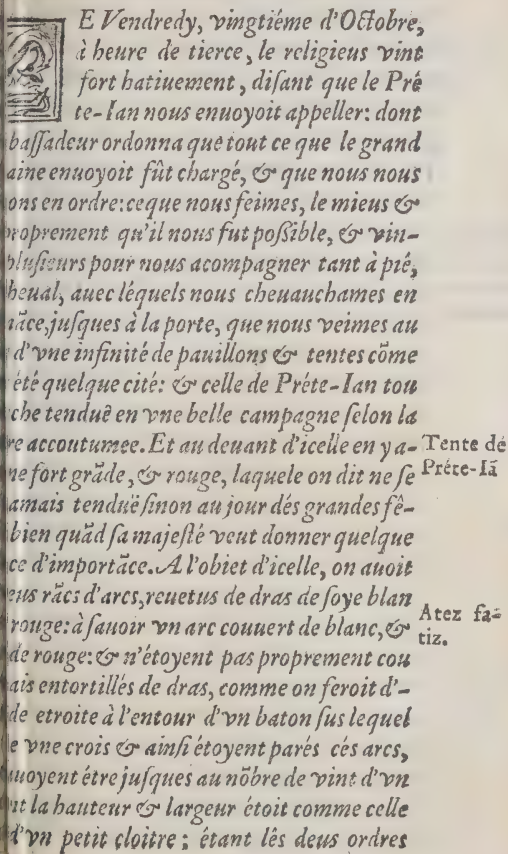 E Vendredy, vingtiéme d'Octobre,
à heure de tierce, le religieus vint
fort hatiuement, disant que le Pré
te-Ian nous enuoyoit appeller: dont
bassadeur ordonna que tout ce que le grand
aine enuoyoit fût chargé, & que nous nous
ons en ordre: ce que nous feimes, le mieus &
proprement qu'il nous fut possible, & vin-
plusieurs pour nous acompagner tant à pié,
heual, auec léquels nous cheuauchames en
iāce, jusques à la porte, que nous veimes au
d'vne infinité de pauillons & tentes cōme
été quelque cité: & celle de Préte-Ian tou
che tenduë en vne belle campagne selon la
re accoutumee. Et au deuant d'icelle en y a-
Tente dé
Préte-Iā
ne fort grāde, & rouge, laquele on dit ne se
amais tenduë sinon au jour dés grandes fê-
bien quād sa majesté veut donner quelque
ce d'importāce. A l'obiet d'icelle, on auoit
eus rācs d'arcs, reuetus de dras de soye blan
Atez fa-
tiz.
rouge: à sauoir vn arc couuert de blanc, &
de rouge: & n'étoyent pas proprement cou
ais entortillés de dras, comme on feroit d'-
de etroite à l'entour d'vn baton sus lequel
e vne crois & ainsi étoyent parés cés arcs,
uuoyent étre jusques au nōbre de vint d'vn
nt la hauteur & largeur étoit comme celle
d'vn petit cloitre; étant lês deus ordres